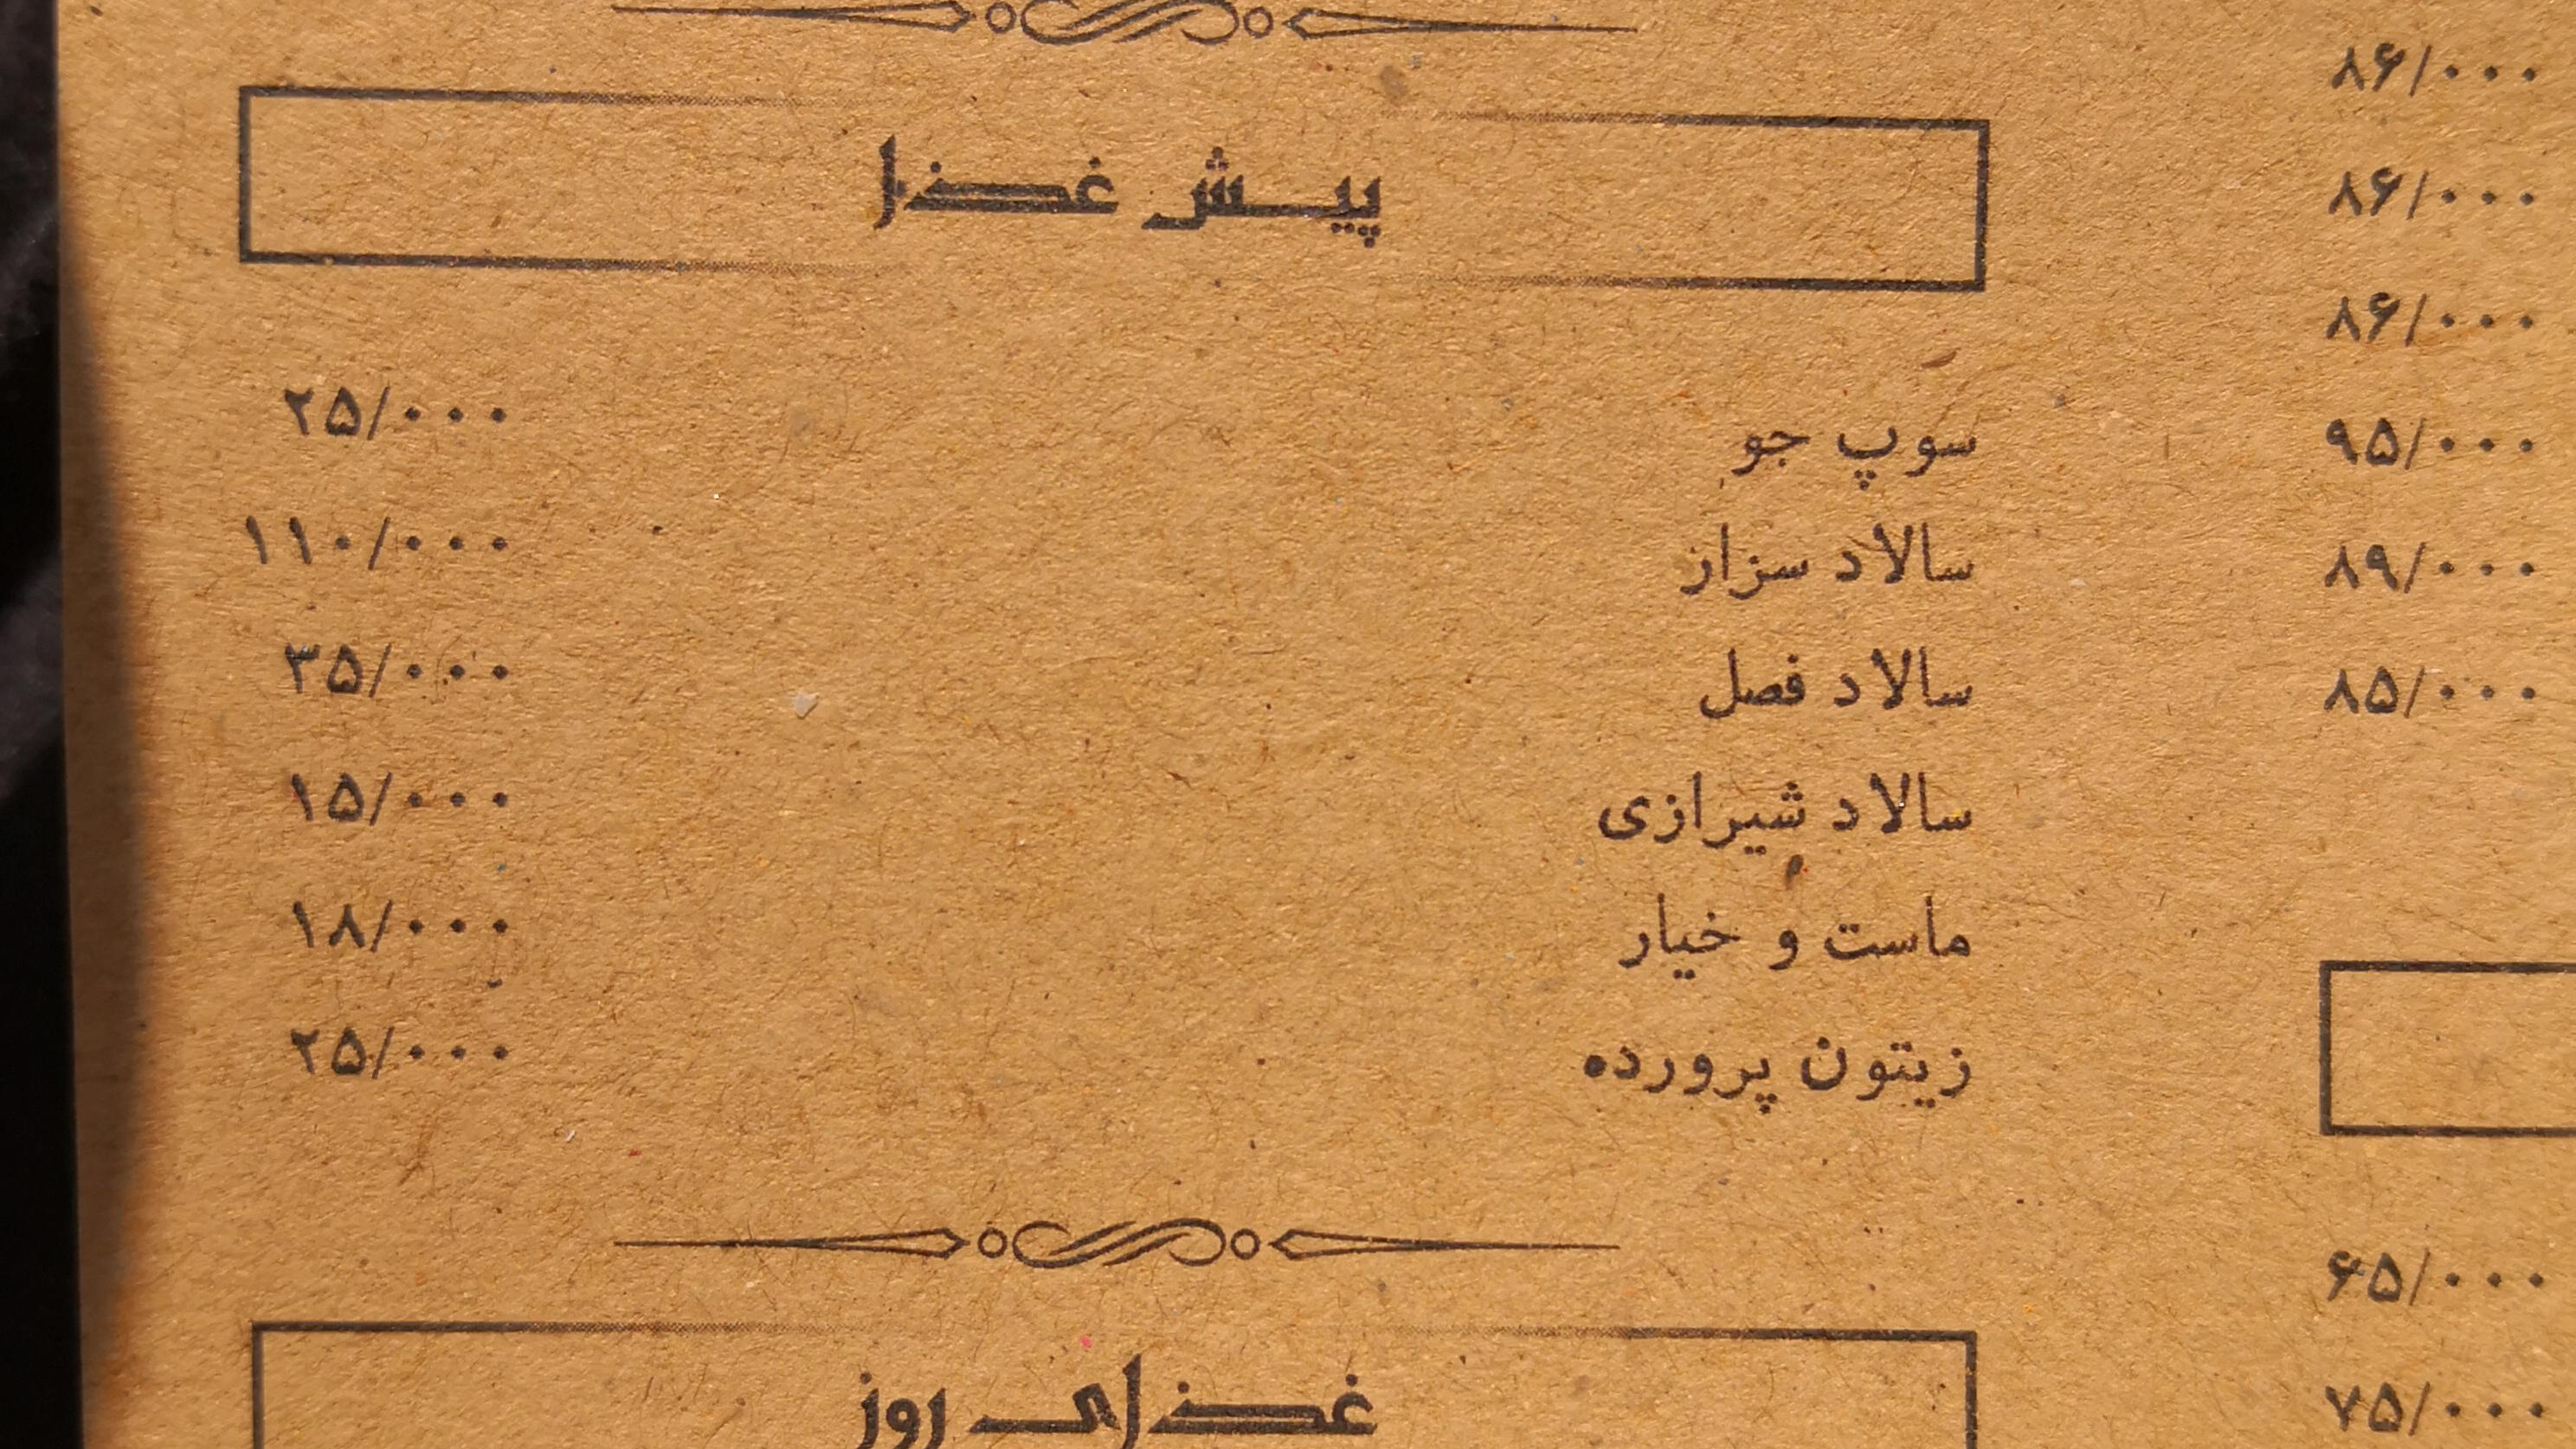 ۸۶/۰۰۰
۸۶/۰۰۰
۸۶/۰۰۰
۹۵/۰۰۰
۸۹/۰۰۰
۸۵/۰۰۰
۶۵/۰۰۰
۷۵/۰۰۰
پیش غذا
سوپ جو ۲۵/۰۰۰
سالاد سزار ۱۱۰/۰۰۰
سالاد فصل ۳۵/۰۰۰
سالاد شیرازی ۱۵/۰۰۰
ماست و خیار ۱۸/۰۰۰
زیتون پرورده ۲۵/۰۰۰
غذای روز